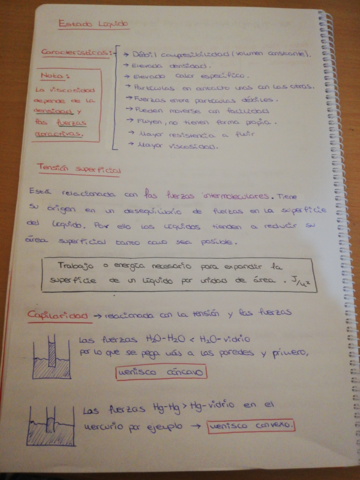 Estado Líquido
Características:
→ Débil compresibilidad (volumen constante).
→ Elevada densidad.
→ Elevado calor específico.
→ Partículas en contacto unas con las otras.
→ Fuerzas entre partículas débiles.
→ Pueden moverse con facilidad
→ Fluyen, no tienen forma propia.
→ Mayor resistencia a fluir
→ Mayor viscosidad.
Nota:
La viscosidad
depende de la
densidad y
las fuerzas
Tensión superficial
Está relacionada con las fuerzas intermoleculares. Tiene
su origen en un desequilibrio de fuerzas en la superficie
del líquido. Por ello los líquidos tienden a reducir su
área superficial tanto como sea posible.
Trabajo o energía necesario para expandir la
superficie de un líquido por unidad de área. J/m²
Capilaridad → relacionada con la tensión y las fuerzas
Las fuerzas H₂O-H₂O < H₂O-vidrio
por lo que se pega más a las paredes y primero,
menisco cóncavo
Las fuerzas Hg-Hg > Hg-vidrio en el
mercurio por ejemplo → menisco convexo